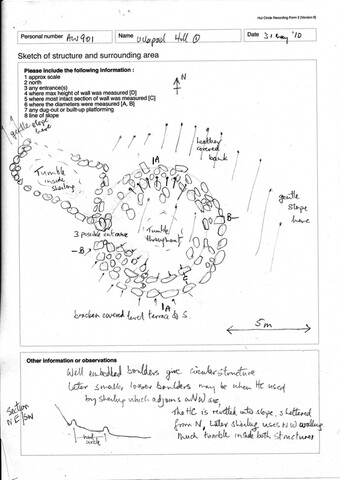 Hut Circle Recording Form 2 (Version 6)
Personal number AW901
Name Ullapool Hill ①
Date 31 May '10
Sketch of structure and surrounding area
Please include the following information :
1 approx scale
2 north
3 any entrance(s)
4 where max height of wall was measured [D]
5 where most intact section of wall was measured [C]
6 where the diameters were measured [A, B]
7 any dug-out or built-up platforming
8 line of slope
N
gentle slope
here
heather
covered
bank
Tumble
inside
shieling
A
gentle
slope
here
B
3 possible entrance
Tumble
throughout
B
C
A
bracken covered level terrace to S.
5m
Other information or observations
Well embedded boulders give circular structure
Later smaller, looser boulders may be when HC used
by shieling which adjoins on NW side,
The HC is revetted into slope, sheltered
from N, Later shieling uses NW walling.
Much tumble inside both structures
Section
NE/SW
hut
circle